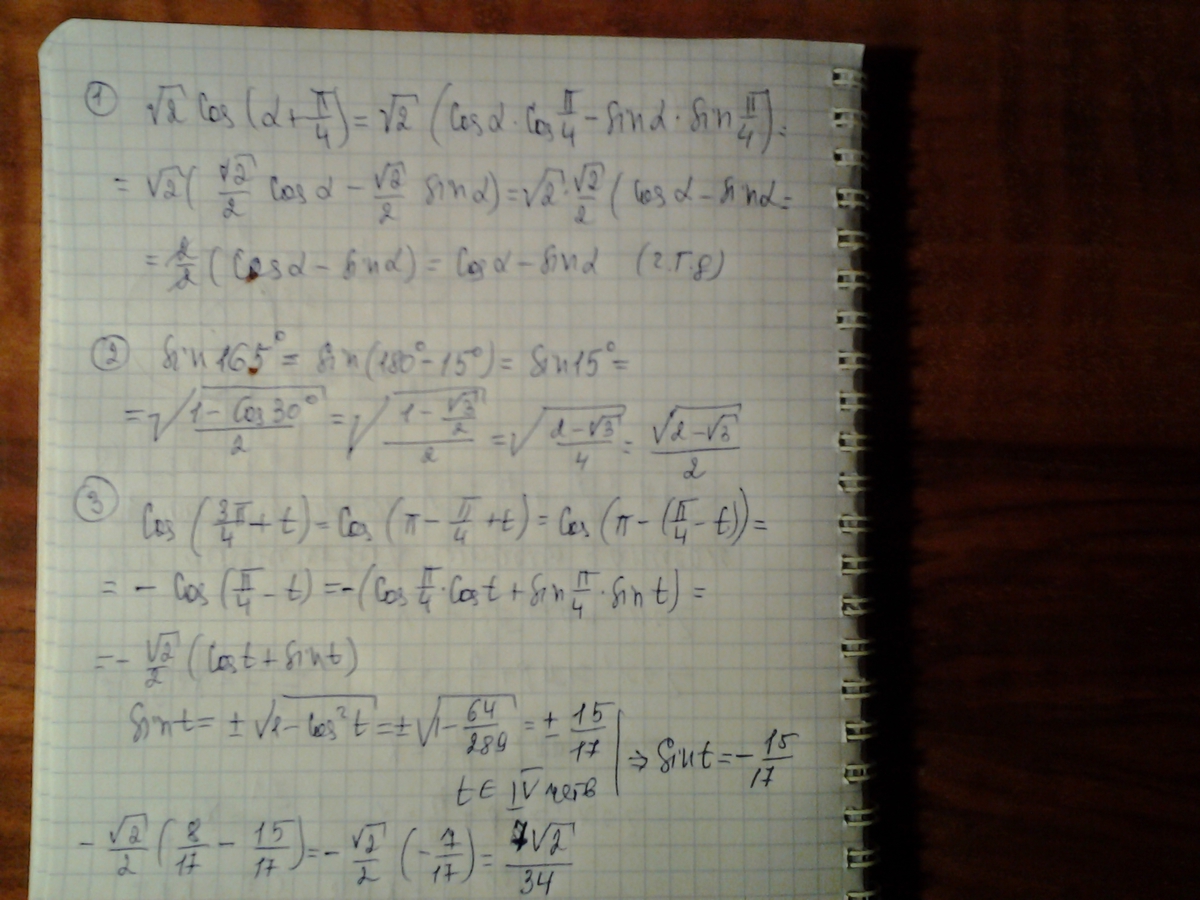 ① √2 cos(α+π/4) = √2 (cosα · cos π/4 − sinα · sin π/4) =
= √2 (√2/2 cosα − √2/2 sinα) = √2 · √2/2 (cosα − sinα =
= 2/2 (cosα − sinα) = cosα − sinα (ч.т.д)
② sin 165° = sin(180° − 15°) = sin 15° =
= √((1 − cos 30°)/2) = √((1 − √3/2)/2) = √((2 − √3)/4) = √(2 − √3)/2
③ cos(3π/4 + t) = cos(π − π/4 + t) = cos(π − (π/4 − t)) =
= − cos(π/4 − t) = −(cos π/4 · cos t + sin π/4 · sin t) =
= − √2/2 (cos t + sin t)
sin t = ± √(1 − cos² t) = ± √(1 − 64/289) = ± 15/17 | ⇒ sin t = − 15/17
t ∈ IV четв
− √2/2 (8/17 − 15/17) = − √2/2 (− 7/17) = 7√2/34